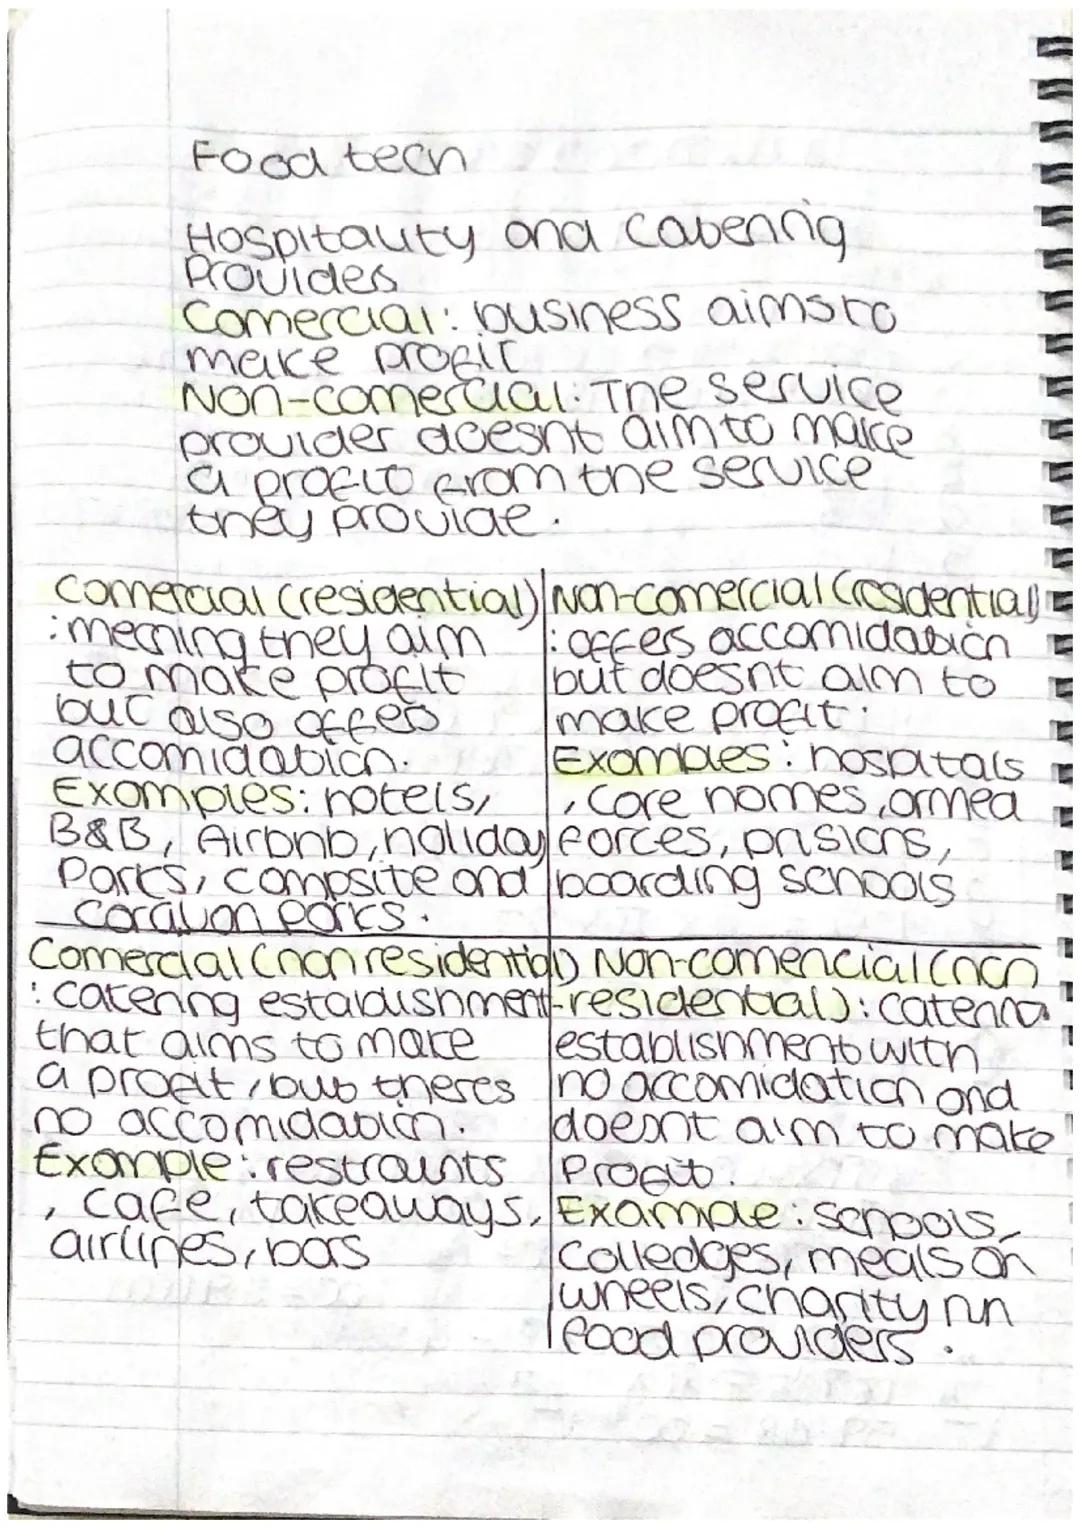 Food tech
Hospitality and Catering
Providers
Comercial: business aims to
make profit
Non-comercial: The service
provider doesnt aim to make
a profit from the service
they provide.
Comercial (residential)
: meaning they aim
to make profit
but also offers
accomidation.
Examples: hotels,
B&B, Airbnb, holiday
Parks, campsite and
caravan parks.
Non-comercial (residential)
: offers accomidation
but doesnt aim to
make profit.
Examples: hospitals
, Care homes, armed
forces, prisions,
boarding schools
Comercial (non residential)
: catering establishment
that aims to make
a profit, but theres
no accomidation.
Example: restraunts
, cafe, takeaways,
airlines, bars
Non-comercial (non
-residential): catering
establishment with
no accomidation and
doesnt aim to make
Profit.
Example: schools,
Colledges, meals on
wheels, charity run
food providers.